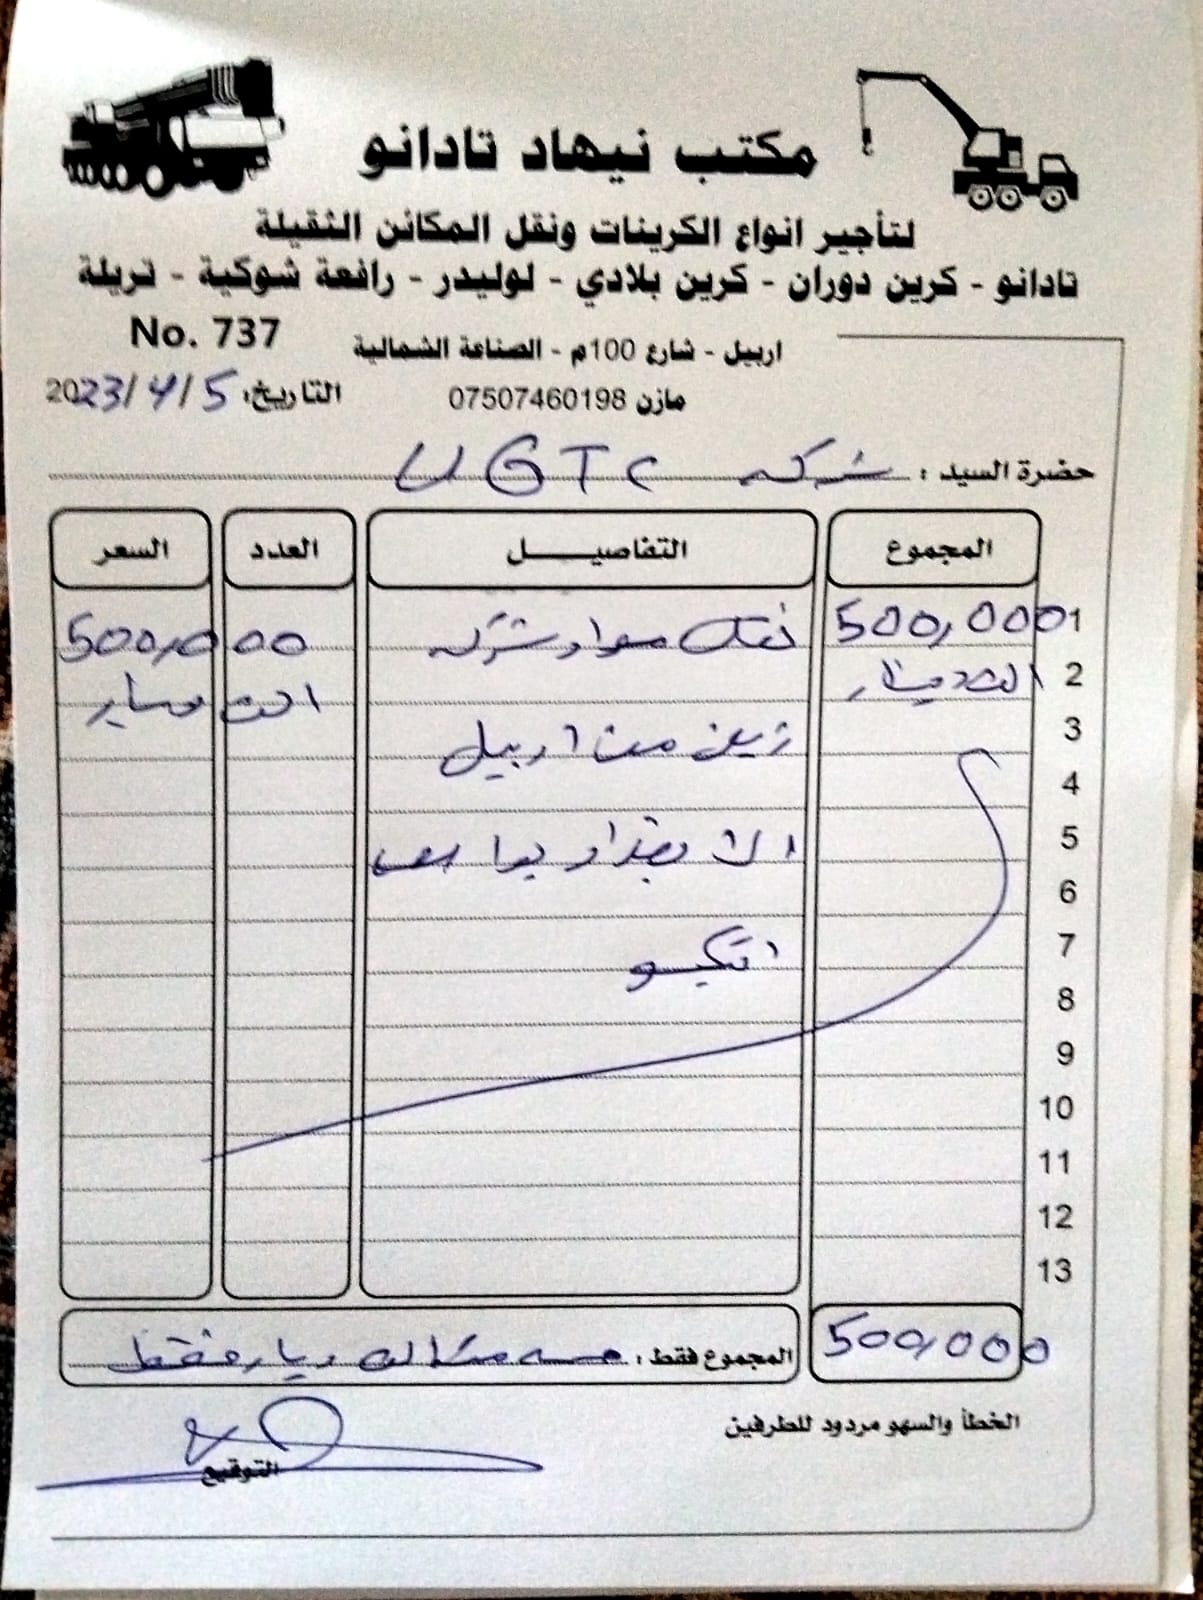 مكتب نيهاد تادانو
لتأجير انواع الكرينات ونقل المكائن الثقيلة
تادانو - كرين دوران - كرين بلادي - لوليدر - رافعة شوكية - تريلة
No. 737
اربيل - شارع 100م - الصناعة الشمالية
التاريخ: 2023/4/5
مازن 07507460198
حضرة السيد : شركه UGTC
المجموع التفاصيــــل العدد السعر
1 500,000 نقل مواد شركه 500,000
2 الف دينار الف دينار
3 زين من اربيل
4
5 الى بغداد
6
7
8
9
10
11
12
13
500,000 المجموع فقط : خمسه مئة الف دينار فقط
الخطأ والسهو مردود للطرفين
التوقيع